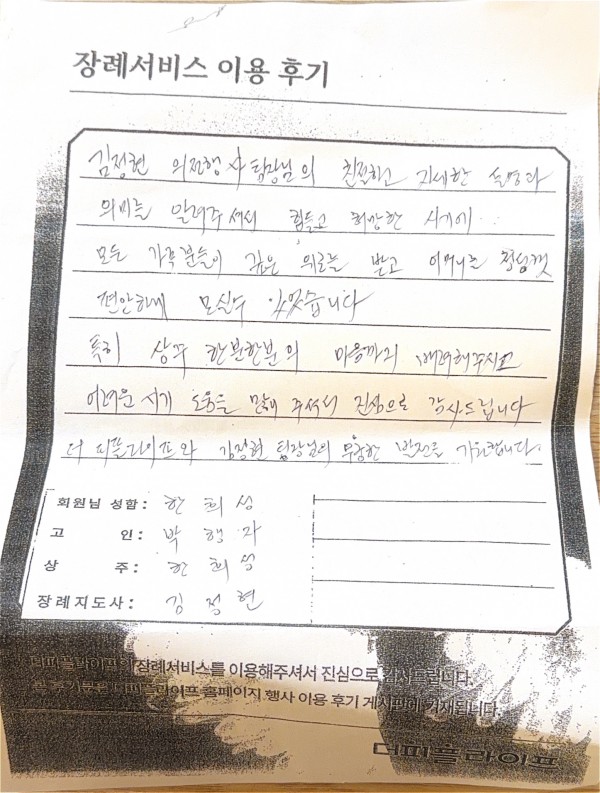 장례서비스 이용 후기
김정현 의전행사 팀장님의 친절하고 자세한 설명과
의미를 알려주셔서 힘들고 허망한 시기에
모든 가족분들이 깊은 위로를 받고 어머니를 정성껏
편안하게 모실수 있었습니다
특히 상주 한분한분의 마음까지 배려해주시고
어려운 시기 도움을 많이 주셔서 진심으로 감사드립니다
더 피플라이프와 김정현 팀장님의 무궁한 발전을 기원합니다.
회원님 성함: 한희성
고 인: 박행자
상 주: 한희성
장례지도사: 김정현
더피플라이프의 장례서비스를 이용해주셔서 진심으로 감사드립니다.
더피플라이프 홈페이지 행사 이용 후기 게시판에 기재됩니다.
더피플라이프